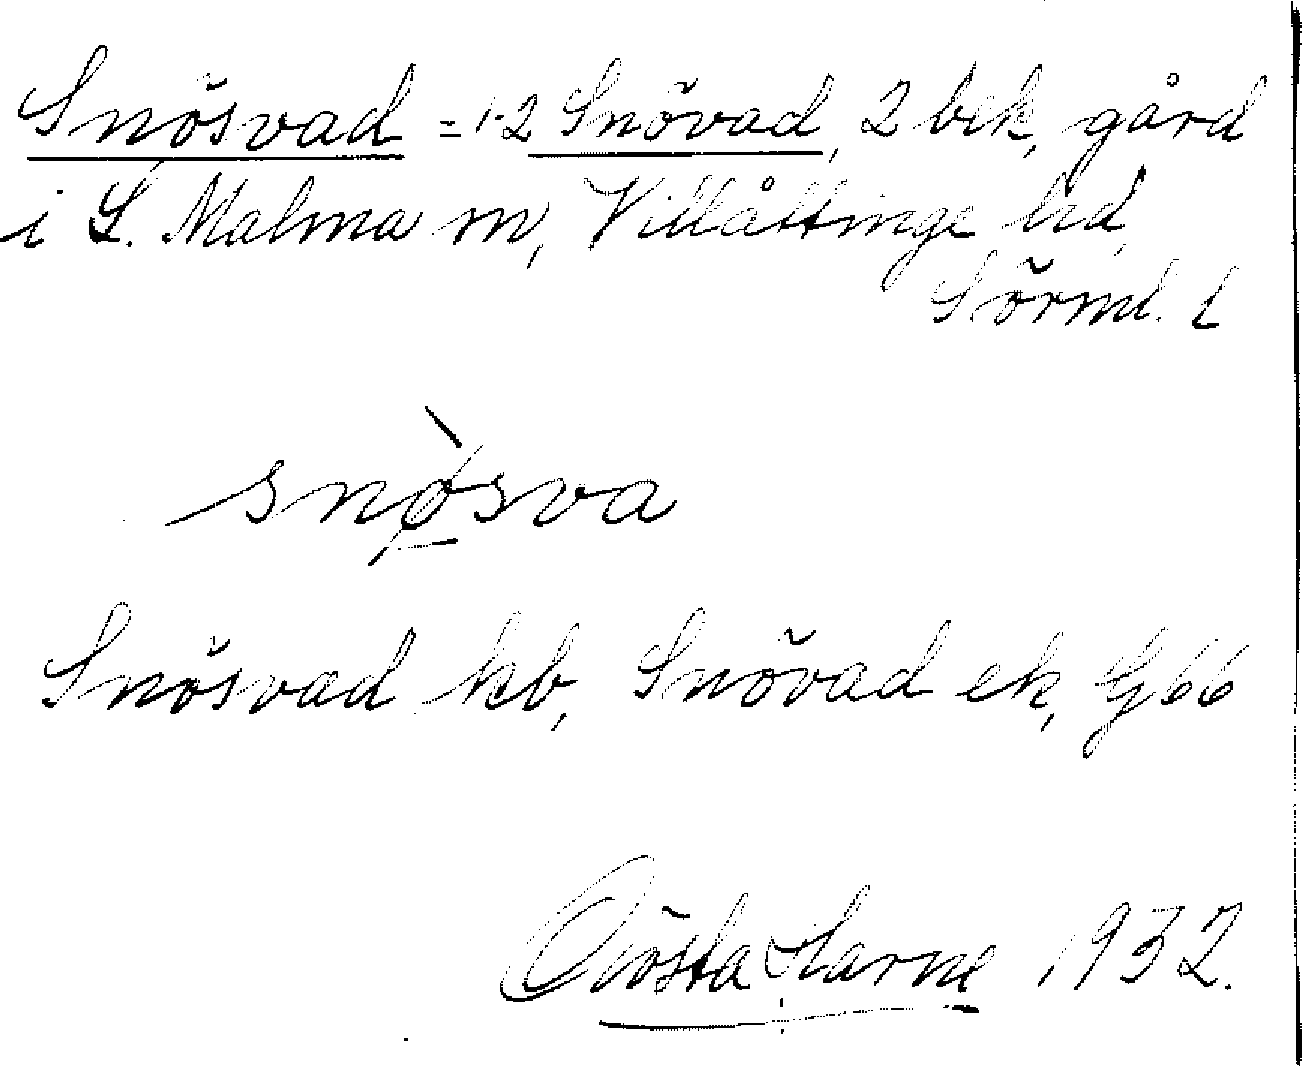 Snösvad = 1-2 Snövad, 2 bek, gård
i L. Malma sn, Villåttinge hd,
Sörml. l
snøsva
Snösvad kb, Snövad ek, G66
Gösta Harne 1932.